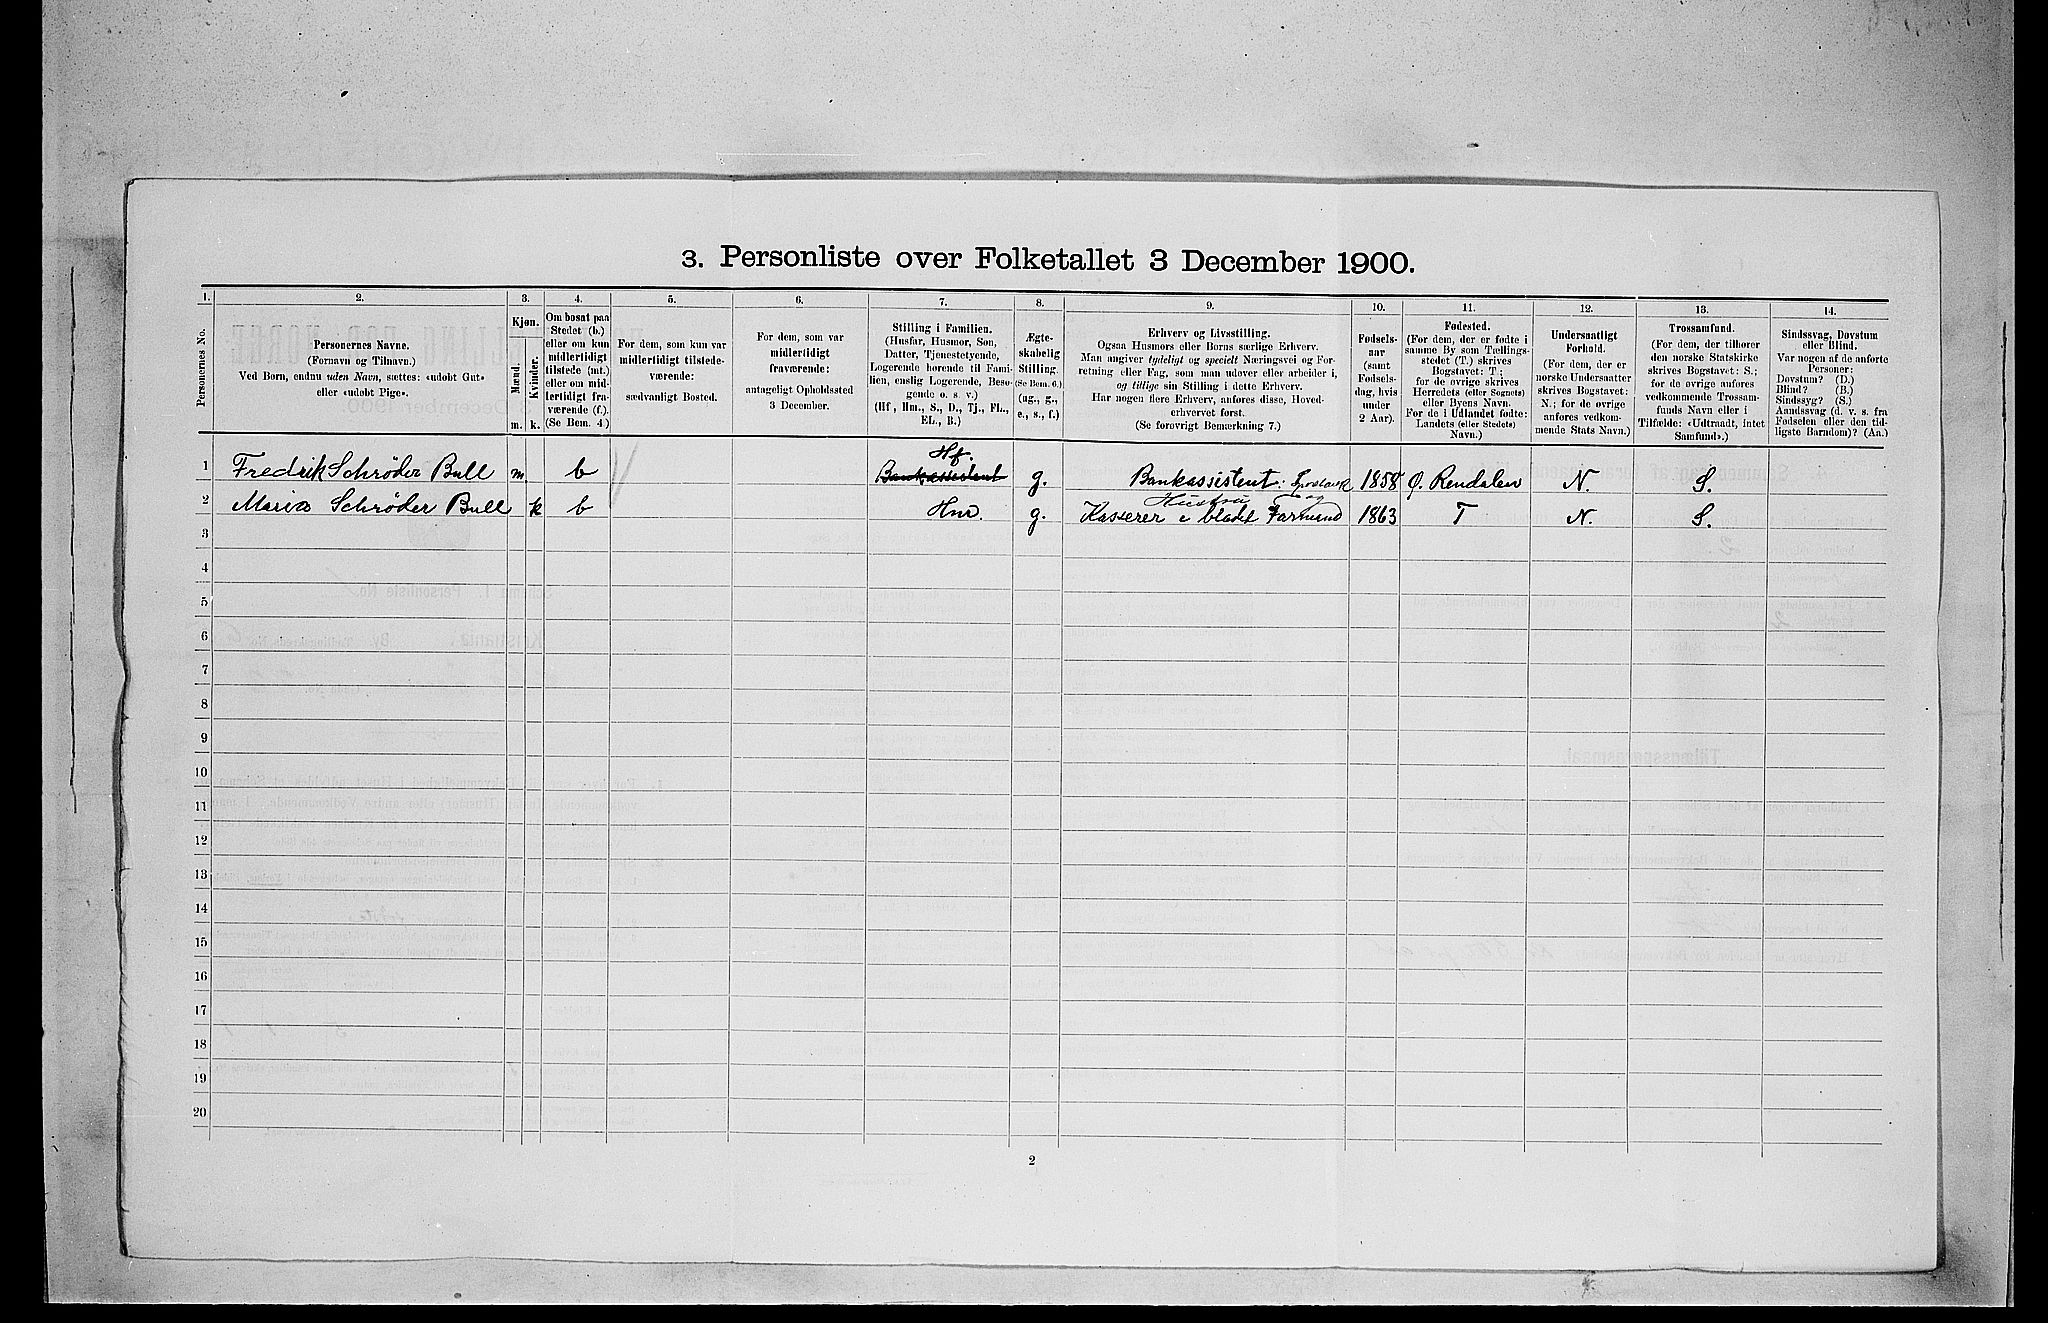 3. Personliste over Folketallet 3 December 1900.
1. 2. 3. 4. 5. 6. 7. 8. 9. 10. 11. 12. 13. 14.
Personernes No.
Personernes Navne.
(Fornavn og Tilnavn.)
Ved Børn, endnu uden Navn, sættes: «udøbt Gut»
eller «udøbt Pige».
Kjøn.
Mænd.
Kvinder.
m. k.
Om bosat paa
Stedet (b.)
eller om kun
midlertidigt
tilstede (mt.)
eller om mid-
lertidigt fra-
værende (f.).
(Se Bem. 4.)
For dem, som kun var
midlertidigt tilstede-
værende:
sædvanligt Bosted.
For dem, som var
midlertidigt
fraværende:
antageligt Opholdssted
3 December.
Stilling i Familien.
(Husfar, Husmor, Søn,
Datter, Tjenestetyende,
Logerende hørende til Fami-
lien, enslig Logerende, Besø-
gende o. s. v.)
(Hf, Hm., S., D., Tj., FL.,
EL., B.)
Ægte-
skabelig
Stilling.
(Se Bem. 6.)
(ug., g.,
e., s., f.)
Erhverv og Livsstilling.
Ogsaa Husmors eller Børns særlige Erhverv.
Man angiver tydeligt og specielt Næringsvei og For-
retning eller Fag, som man udøver eller arbeider i,
og tillige sin Stilling i dette Erhverv.
Har nogen flere Erhverv, anføres disse, Hoved-
erhvervet først.
(Se forøvrigt Bemærkning 7.)
Fødsels-
aar
(samt
Fødsels-
dag, hvis
under
2 Aar).
Fødested.
(For dem, der er fødte i
samme By som Tællings-
stedet (T.) skrives
Bogstavet: T;
for de øvrige skrives
Herredets (eller Sognets)
eller Byens Navn.
For de i Udlandet fødte:
Landets (eller Stedets)
Navn.)
Undersaatligt
Forhold.
(For dem, der er
norske Undersaatter
skrives Bogstavet:
N.; for de øvrige
anføres vedkom-
mende Stats Navn.)
Trossamfund.
(For dem, der tilhører
den norske Statskirke
skrives Bogstavet: S.;
for de øvrige anføres
vedkommende Trossam-
funds Navn eller i
Tilfælde: «Udtraadt, intet
Samfund».)
Sindssvag, Døvstum
eller Blind.
Var nogen af de anførte
Personer:
Døvstum? (D.)
Blind? (B.)
Sindssyg? (S.)
Aandssvag (d. v. s. fra
Fødselen eller den tid-
ligste Barndom)? (Aa.)
Hf.
1 Fredrik Schrøder Bull m b Bankassistent g. Bankassistent: 1858 Ø. Rendalen N. S.
Hustru og
2 Maria Schrøder Bull k b Hm. g. Kasserer i bladet Farmand 1863 T N. S.
3
4
5
6
7
8
9
10
11
12
13
14
15
16
17
18
19
20
2